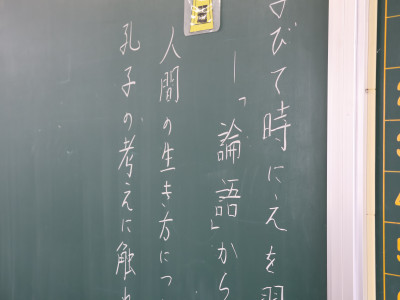 びて時に之を習
―「論語」から
人間の生き方につ
孔子の考えに触れ
2
3
4
5